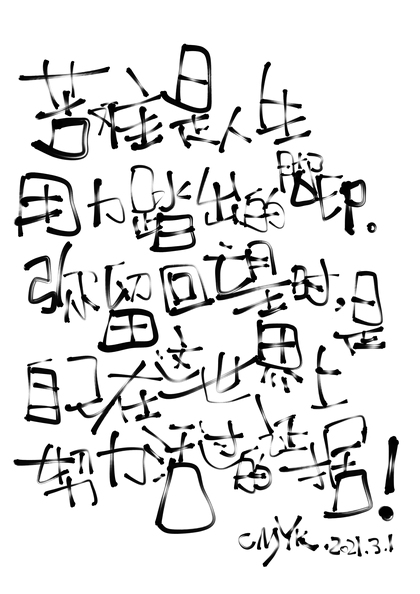 苦难是人生
用力踏出的脚印.
弥留回望时,是
自己在这世界上
努力活过的证据!
CMYK.2021.3.1